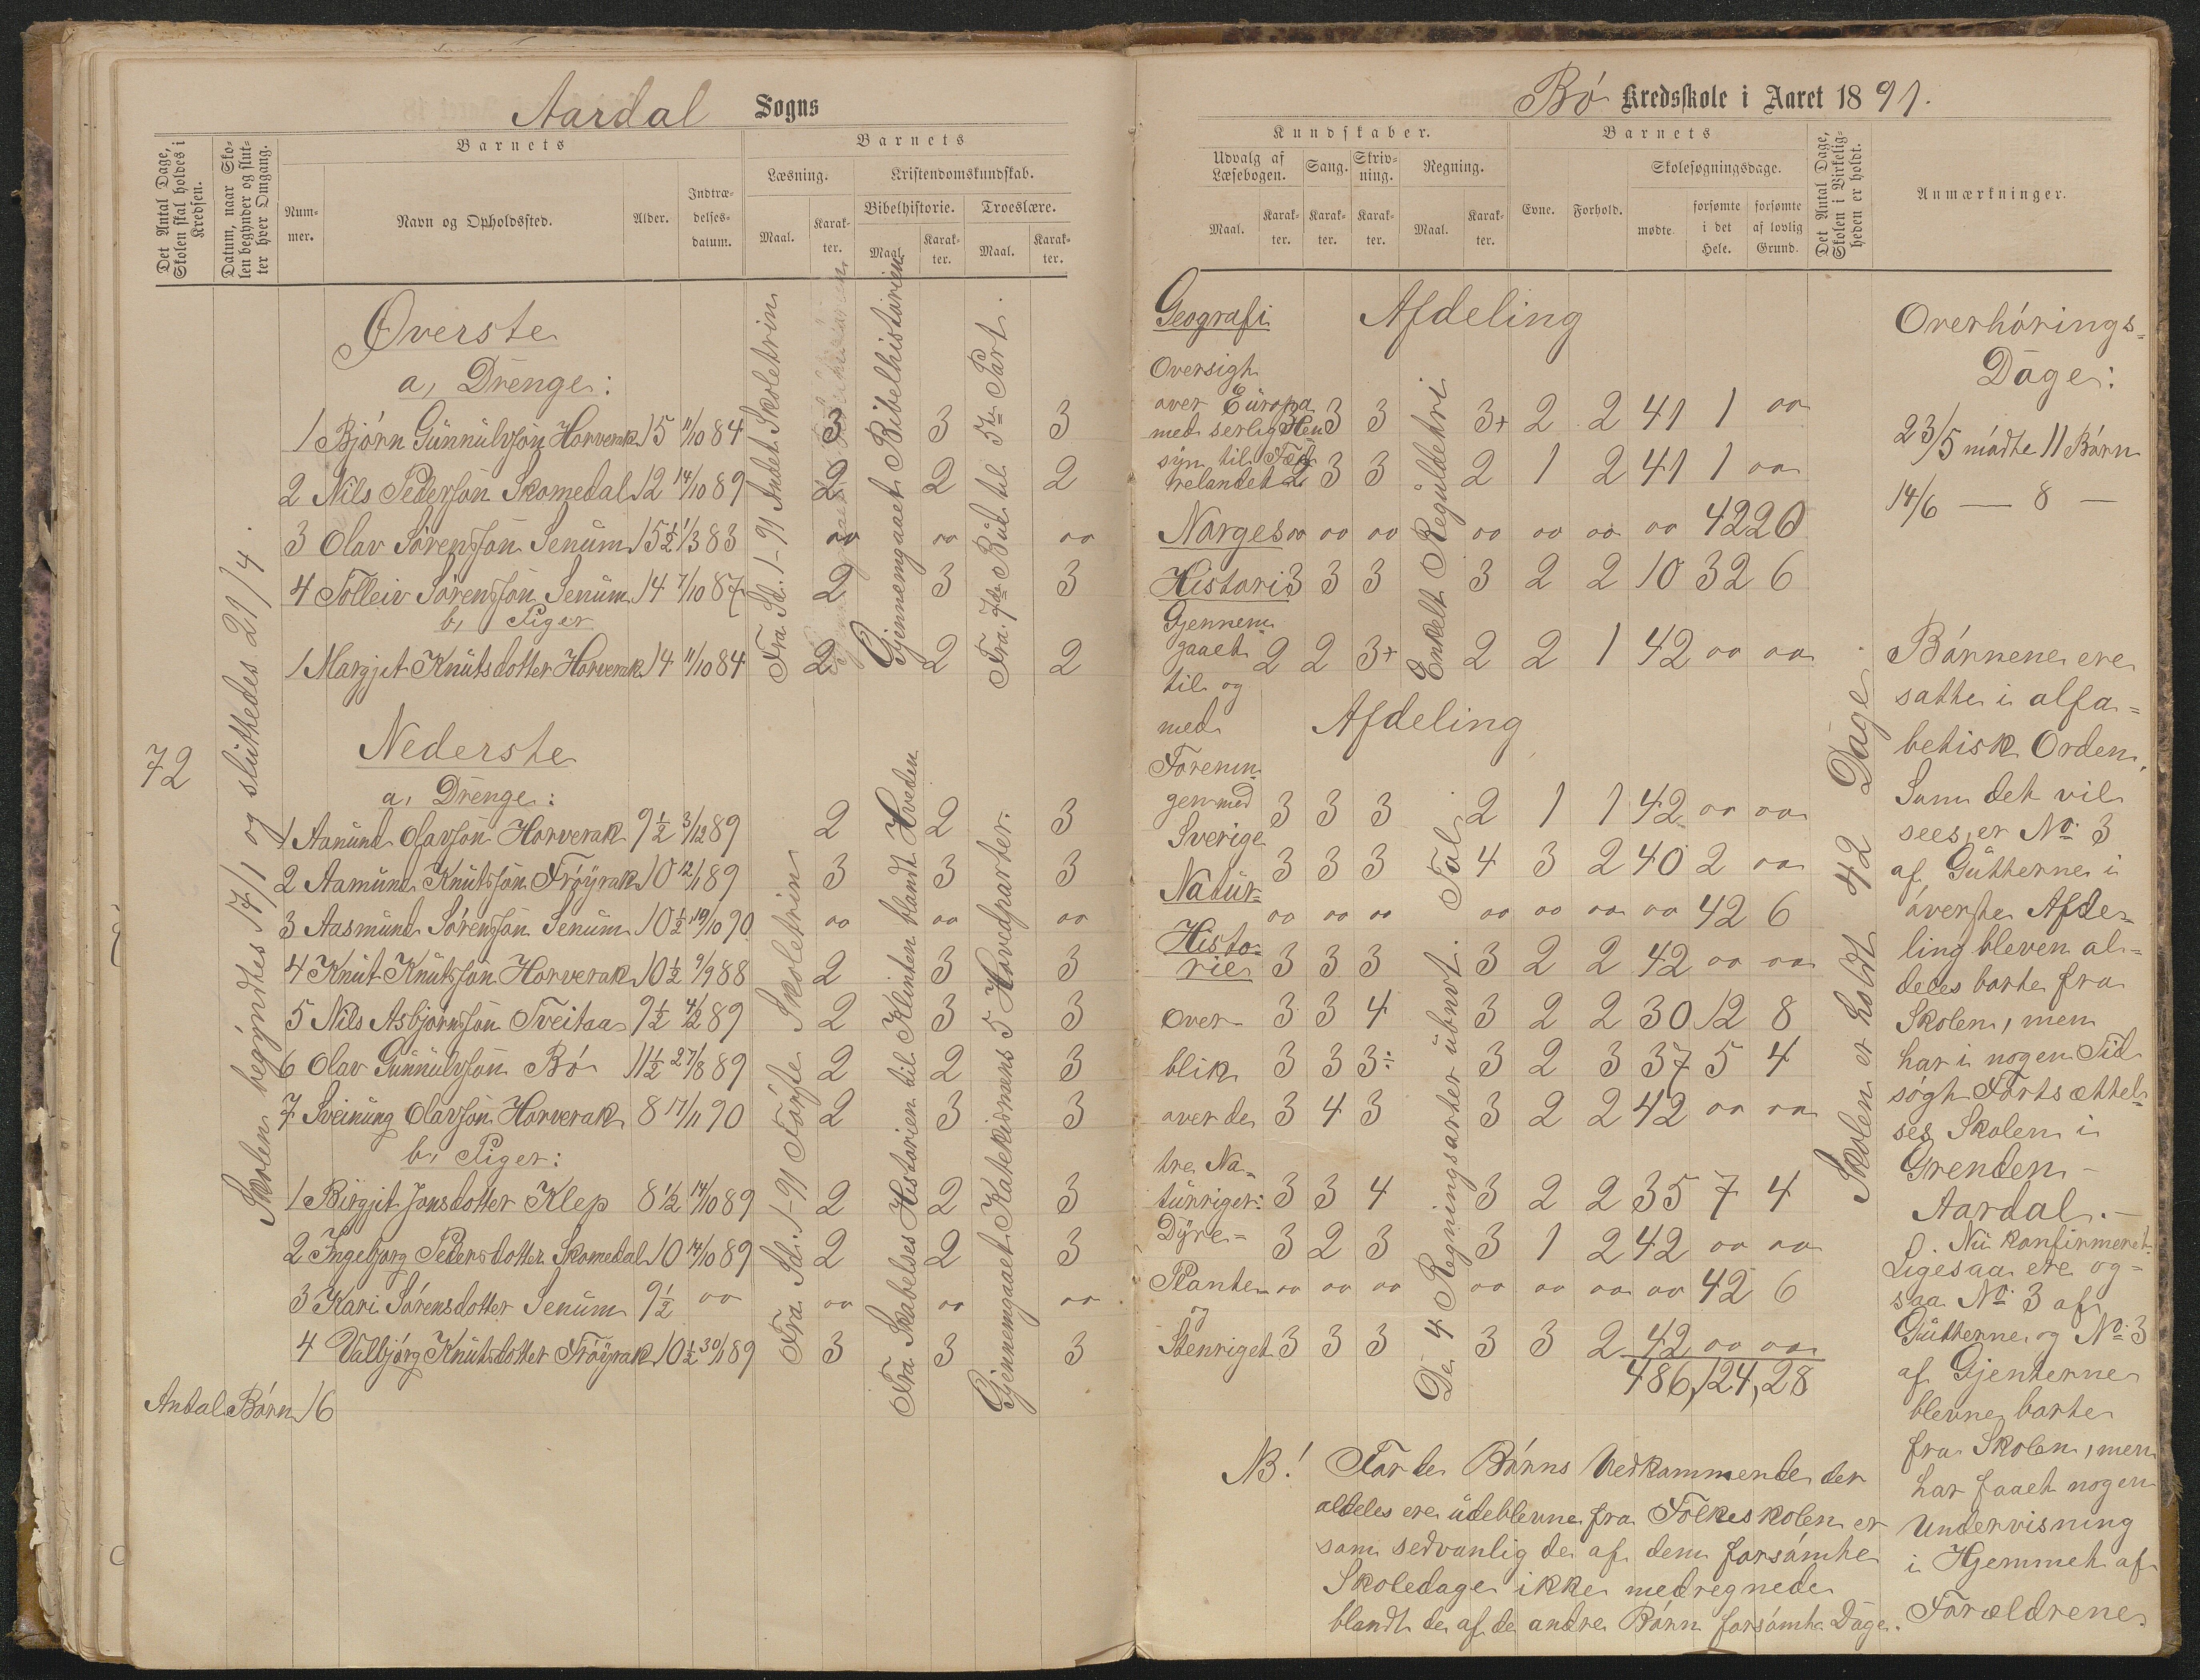 Aardal Sogns
Det Antal Dage, Skolen skal holdes i Kredsen.
Datum, naar Skolen begynder og slutter hver Omgang.
Barnets
Nummer.
Navn og Opholdssted.
Alder.
Indtrædelsesdatum.
Barnets
Læsning.
Maal.
Karakter.
Kristendomskundskab.
Bibelhistorie.
Maal.
Karakter.
Troeslære.
Maal.
Karakter.
72
Skolen begyndtes 17/1 og sluttedes 21/4.
Øverste
a, Drenge:
1 Bjørn Gunnulvsøn Horverak 15 11/10 84 3 3 3
2 Nils Pedersøn Skomedal 12 14/10 89 2 2 2
3 Olav Sørensøn Senum 15½ 1/3 83 oo oo oo
4 Tolleiv Sørensøn Senum 14 7/10 87 2 3 3
b, Piger
1 Margjit Knutsdotter Horverak 14 11/10 84 2 2 2
Fra Sd. 1-91 Andet Skoletrin
Gjennemgaaet Bibelhistorien
Fra 7de Bud til 5te Part.
Nederste
a, Drenge:
1 Aanund Olavsøn Horverak 9½ 3/12 89 2 2 3
2 Aamund Knutsøn Frøyrak 10 12/1 89 3 3 3
3 Aasmund Sørensøn Senum 10½ 19/10 90 oo oo oo
4 Knut Knutsøn Horverak 10½ 9/9 88 2 3 3
5 Nils Asbjørnsøn Tveitaa 9½ 4/2 89 2 3 3
6 Olav Gunnulvsøn Bø 11½ 27/8 89 2 2 3
7 Sveinung Olavsøn Horverak 8 17/11 90 2 3 3
b, Piger:
1 Birgjit Jonsdotter Klep 8½ 14/10 89 2 2 3
2 Ingebjorg Pedersdotter Skomedal 10 14/10 89 2 2 3
3 Kari Sørensdotter Senum 9½ oo oo oo oo
4 Valbjørg Knutsdotter Frøyrak 10½ 30/1 89 3 3 3
Fra Sd. 1-91 Første Skoletrin
Fra Skabelses Historien til Klinten blandt Hveden
Gjennemgaaet Katekismens 5 Hovedparter.
Antal Børn 16
Bø Kredsskole i Aaret 1891.
Kundskaber.
Udvalg af Læsebogen.
Maal.
Karakter.
Sang.
Karakter.
Skrivning.
Karakter.
Regning.
Maal.
Karakter.
Barnets
Evne.
Forhold.
Skolesøgningsdage.
mødte.
forsømte i det Hele.
forsømte af lovlig Grund.
Det Antal Dage, Skolen i Virkeligheden er holdt.
Anmærkninger.
Afdeling
3 3 3 3+ 2 2 41 1 oo
2 3 3 2 1 2 41 1 oo
oo oo oo oo oo oo oo 42 20
3 3 3 3 2 2 10 32 6
2 2 3+ 2 2 1 42 oo oo
Afdeling
3 3 3 2 1 1 42 oo oo
3 3 3 4 3 2 40 2 oo
oo oo oo oo oo oo oo 42 6
3 3 3 3 2 2 42 oo oo
3 3 4 3 2 2 30 12 8
3 3 3÷ 3 2 3 37 5 4
3 4 3 3 2 2 42 oo oo
3 3 4 3 2 2 35 7 4
3 2 3 3 1 2 42 oo oo
oo oo oo oo oo oo oo 42 6
3 3 3 3 3 2 42 oo oo
486, 124, 28
Geografi
Oversigt
over Europa
med serlig Hen
syn til Fæd
relandet
Norges
Historie
Gjennem
gaaet
til og
med
Forenin
gen med
Sverige
Natur-
Histo-
rie
Over-
blik
over de
tre Na-
turriger:
Dyre-
Plante-
og
Stenriget
Enkelt Reguldetri
De 4 Regningsarter ubnvt. Tal
Skolen er holdt 42 Dage.
Overhørings-
Dage:
23/5 mødte 11 Børn
14/6 — 8 —
Børnene ere
satte i alfa-
betisk Orden.
Som det vil
sees, er No. 3
af Gutterne i
øverste Afde-
ling bleven al-
deles borte fra
Skolen, men
har i nogen Tid
søgt Fortsættel-
ses Skolen i
Grenden
Aardal.-
Nu konfirmeret.
Ligesaa ere og-
saa No. 3 af
Gutterne og No. 3
af Gjenterne
blevne borte
fra Skolen, men
har faaet nogen
Undervisning
i Hjemmet af
Forældrene.
NB! For de Børns Vedkommende der
aldeles ere udeblevne fra Folkeskolen er
som sedvanlig de af dem forsømte
Skoledage ikke medregnede
blandt de af de andre Børn forsømte Dage.